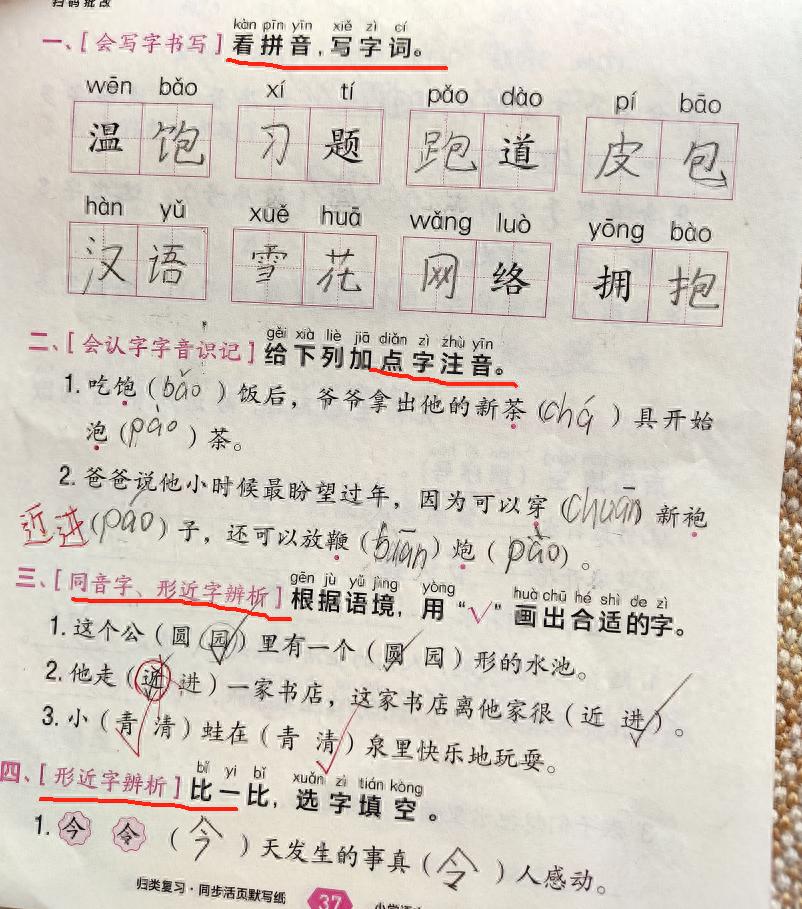 扫码批改
kàn pīn yīn xiě zì cí
一、[会写字书写]看拼音,写字词。
wēn bǎo xí tí pǎo dào pí bāo
温饱 习题 跑道 皮包
hàn yǔ xuě huā wǎng luò yōng bào
汉语 雪花 网络 拥抱
gěi xià liè jiā diǎn zì zhù yīn
二、[会认字字音识记]给下列加点字注音。
1. 吃饱(bǎo)饭后,爷爷拿出他的新茶(chá)具开始
泡(pào)茶。
2. 爸爸说他小时候最盼望过年,因为可以穿(chuān)新袍
近 进(páo)子,还可以放鞭(biān)炮(pào)。
gēn jù yǔ jìng yòng huà chū hé shì de zì
三、[同音字、形近字辨析]根据语境,用“√”画出合适的字。
1. 这个公(圆 园)里有一个(圆 园)形的水池。
2. 他走(近 进)一家书店,这家书店离他家很(近 进)。
3. 小(青 清)蛙在(青 清)泉里快乐地玩耍。
bǐ yi bǐ xuǎn zì tián kòng
四、[形近字辨析]比一比,选字填空。
1. 今 令 (今)天发生的事真(令)人感动。
归类复习·同步活页默写纸 37 小学语文